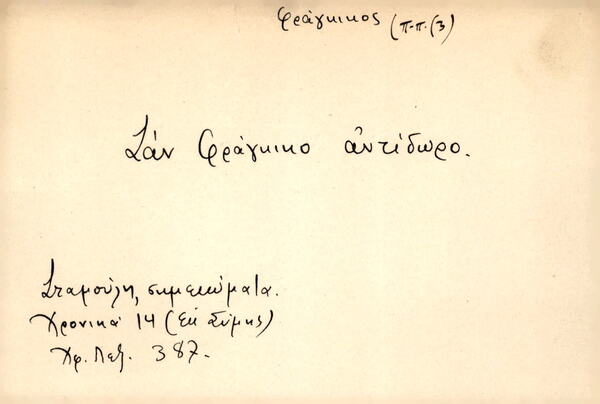 φράγκικος (π-π. (3)
Σὰν Φράγκικο ἀντίδωρο.
Σταμούλη, σημειώματα.
Χρονικά 14 (Ἐκ Σύμης)
Χφ. Λεξ. 387.